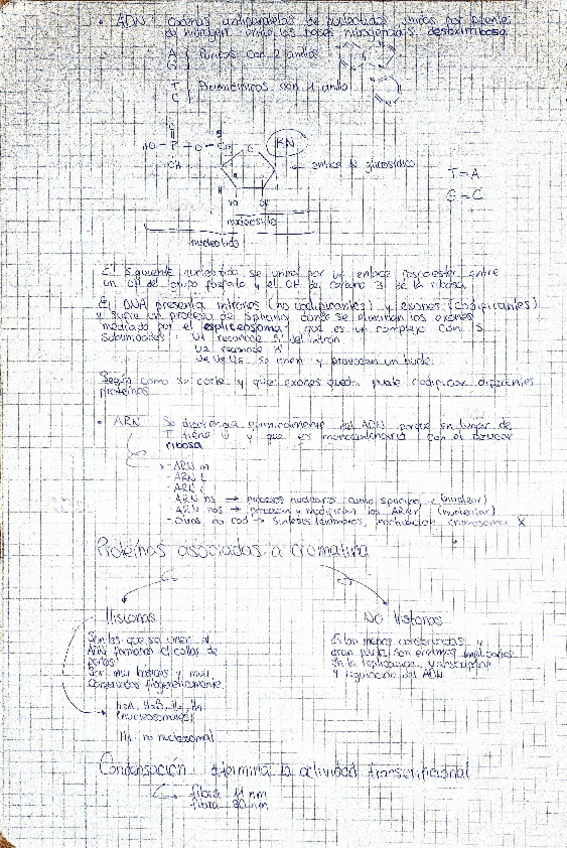 • ADN: Cadenas antiparalelas de nucleótidos unidas por puentes
de hidrógeno entre las bases nitrogenadas. desoxirribosa
A
G
Púricos con 2 anillos
T
C
Pirimidínicos con 1 anillo
O
HO - P - O - C
OH
enlace N-glucosídico
HO OH
nucleósido
nucleótido
T = A
G ≡ C
El siguiente nucleótido se unirá por un enlace fosfoéster entre
un OH del grupo fosfato y el OH del carbono 3' de la ribosa
El DNA presenta intrones (no codificantes) y exones (codificantes)
y sufre un proceso de splicing donde se eliminan los exones
mediado por el espliceosoma que es un complejo con 5
subunidades: U1 reconoce 5' del intrón
U2 reconoce
U4 U5 U6 se unen y provocan un bucle.
Según como se corte y que exones queden puede codificar diferentes
proteínas
• ARN: Se diferencia químicamente del ADN porque en lugar de
T tiene U y que es monocatenario con el azúcar
ribosa
- ARN m
- ARN t
- ARN r
- ARN ns → procesos nucleares como splicing (nuclear)
- ARN nos → procesan y modifican los ARNr (nucleolar)
- Otros no cod → Síntesis telómeros, inactivación cromosoma X
Proteínas asociadas a cromatina
Histonas
Son las que se unen al
ADN formando el collar de
perlas
Son muy básicas y muy
conservadas filogenéticamente
H2A, H2B, H3, H4
(nucleosomales)
H1 no nucleosomal
No histonas
Están menos conservadas y
gran parte son enzimas implicadas
en la replicación, transcripción
y regulación del ADN
Condensación determina la actividad transcripcional
fibra 11 nm
fibra 30 nm